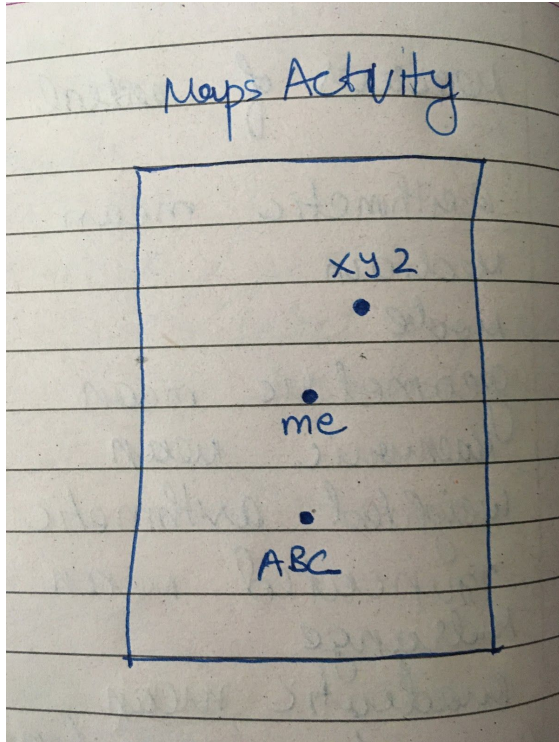 Maps Activity
xyz
me
ABC